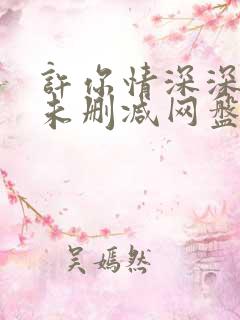 許你情深深
未删减网盘
吴嫣然